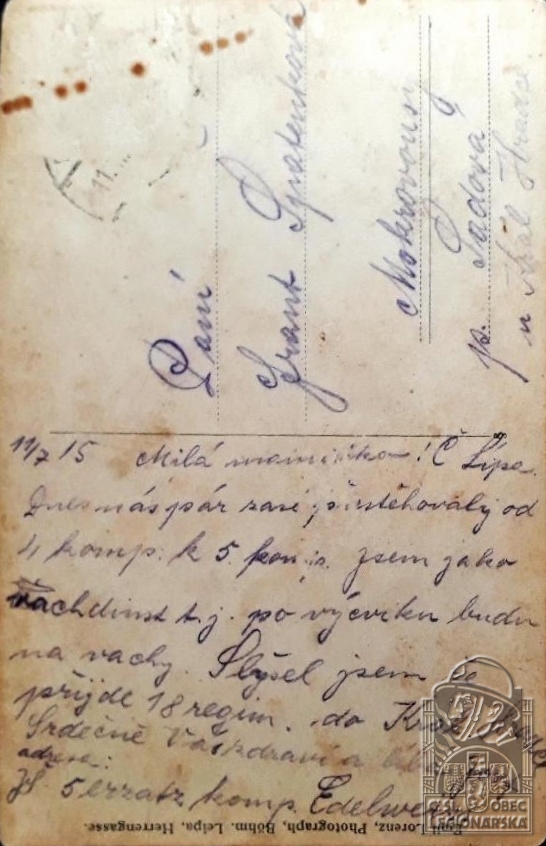 Paní
Frant Špatenková
Mokrovousy
p. Sadová
u Král Hradce
11/7 15 Milá maminko! Č Lípa.
Dnes nás pár zase přestěhovaly od
4 komp. k 5. jsem jako
vachdinst t.j. po výcviku budu
na vachy. Slyšel jsem že
přijde 18 regim. do Král
Srdečně Vás zdraví a líbá
adresa:
5 erzatz komp.
Emil Lorenz, Photograph, Böhm. Leipa, Herrengasse.
ČSL. OBEC
LEGIONÁŘSKÁ